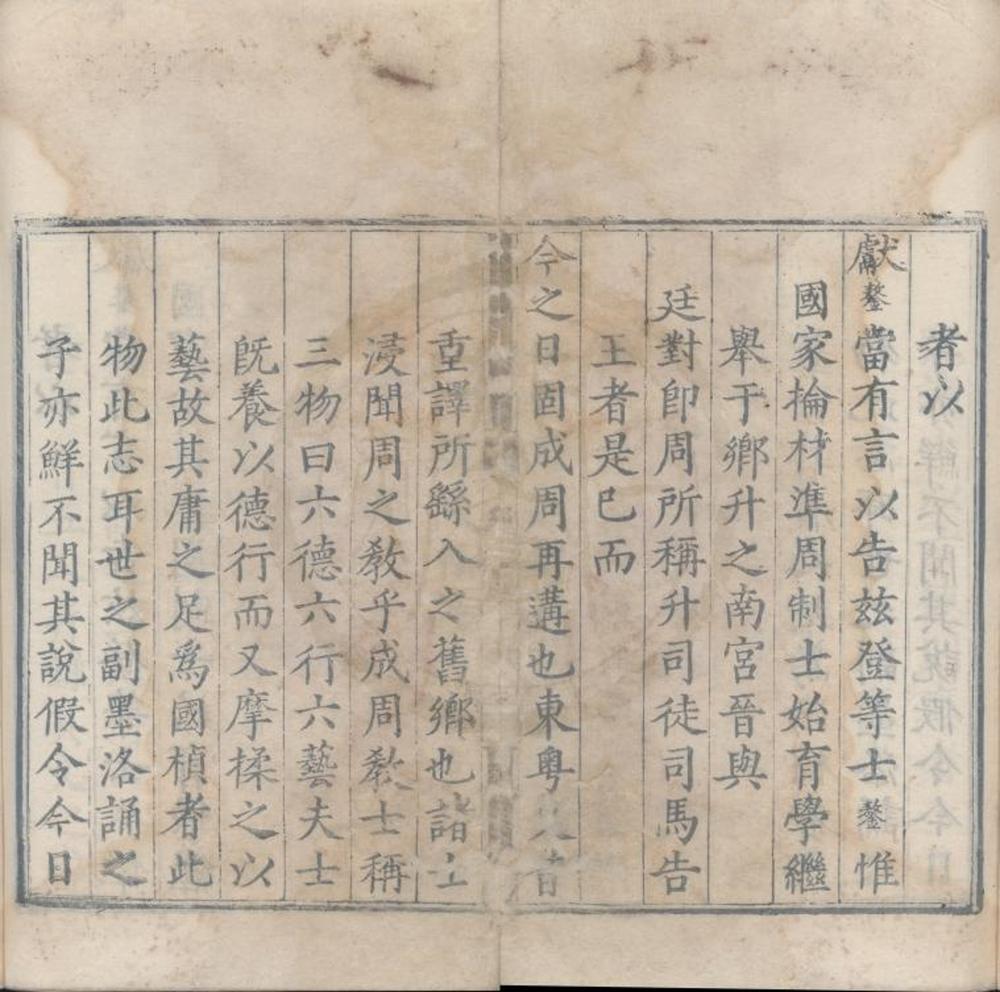 者以
獻鏊當有言以告玆登等士鏊惟
國家掄材準周制士始育學繼
舉于鄉升之南宮晉與
廷對卽周所稱升司徒司馬告
王者是已而
今之日固成周再遘也東粵
重譯所繇入之舊鄉也諸士
浸聞周之敎乎成周敎士稱
三物曰六德六行六藝夫士
旣養以德行而又摩揉之以
藝故其庸之足爲國楨者此
物此志耳世之副墨洛誦之
子亦鮮不聞其說假令今日